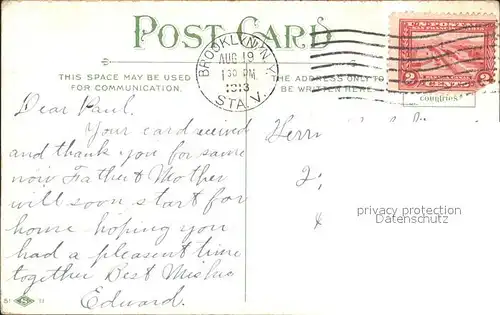 POST CARD
BROOKLYN, N.Y.
AUG 19
1 30 PM
1913
STA. V.
U.S. POSTAGE
2 2
THIS SPACE MAY BE USED
FOR COMMUNICATION.
THE ADDRESS ONLY TO
BE WRITTEN HERE
countries
Dear Paul.
Your card received
and thank you for same
now Father & Mother
will soon start for
home hoping you
had a pleasent time
together Best Wishes
Edward.
Herrn
privacy protection
Datenschutz